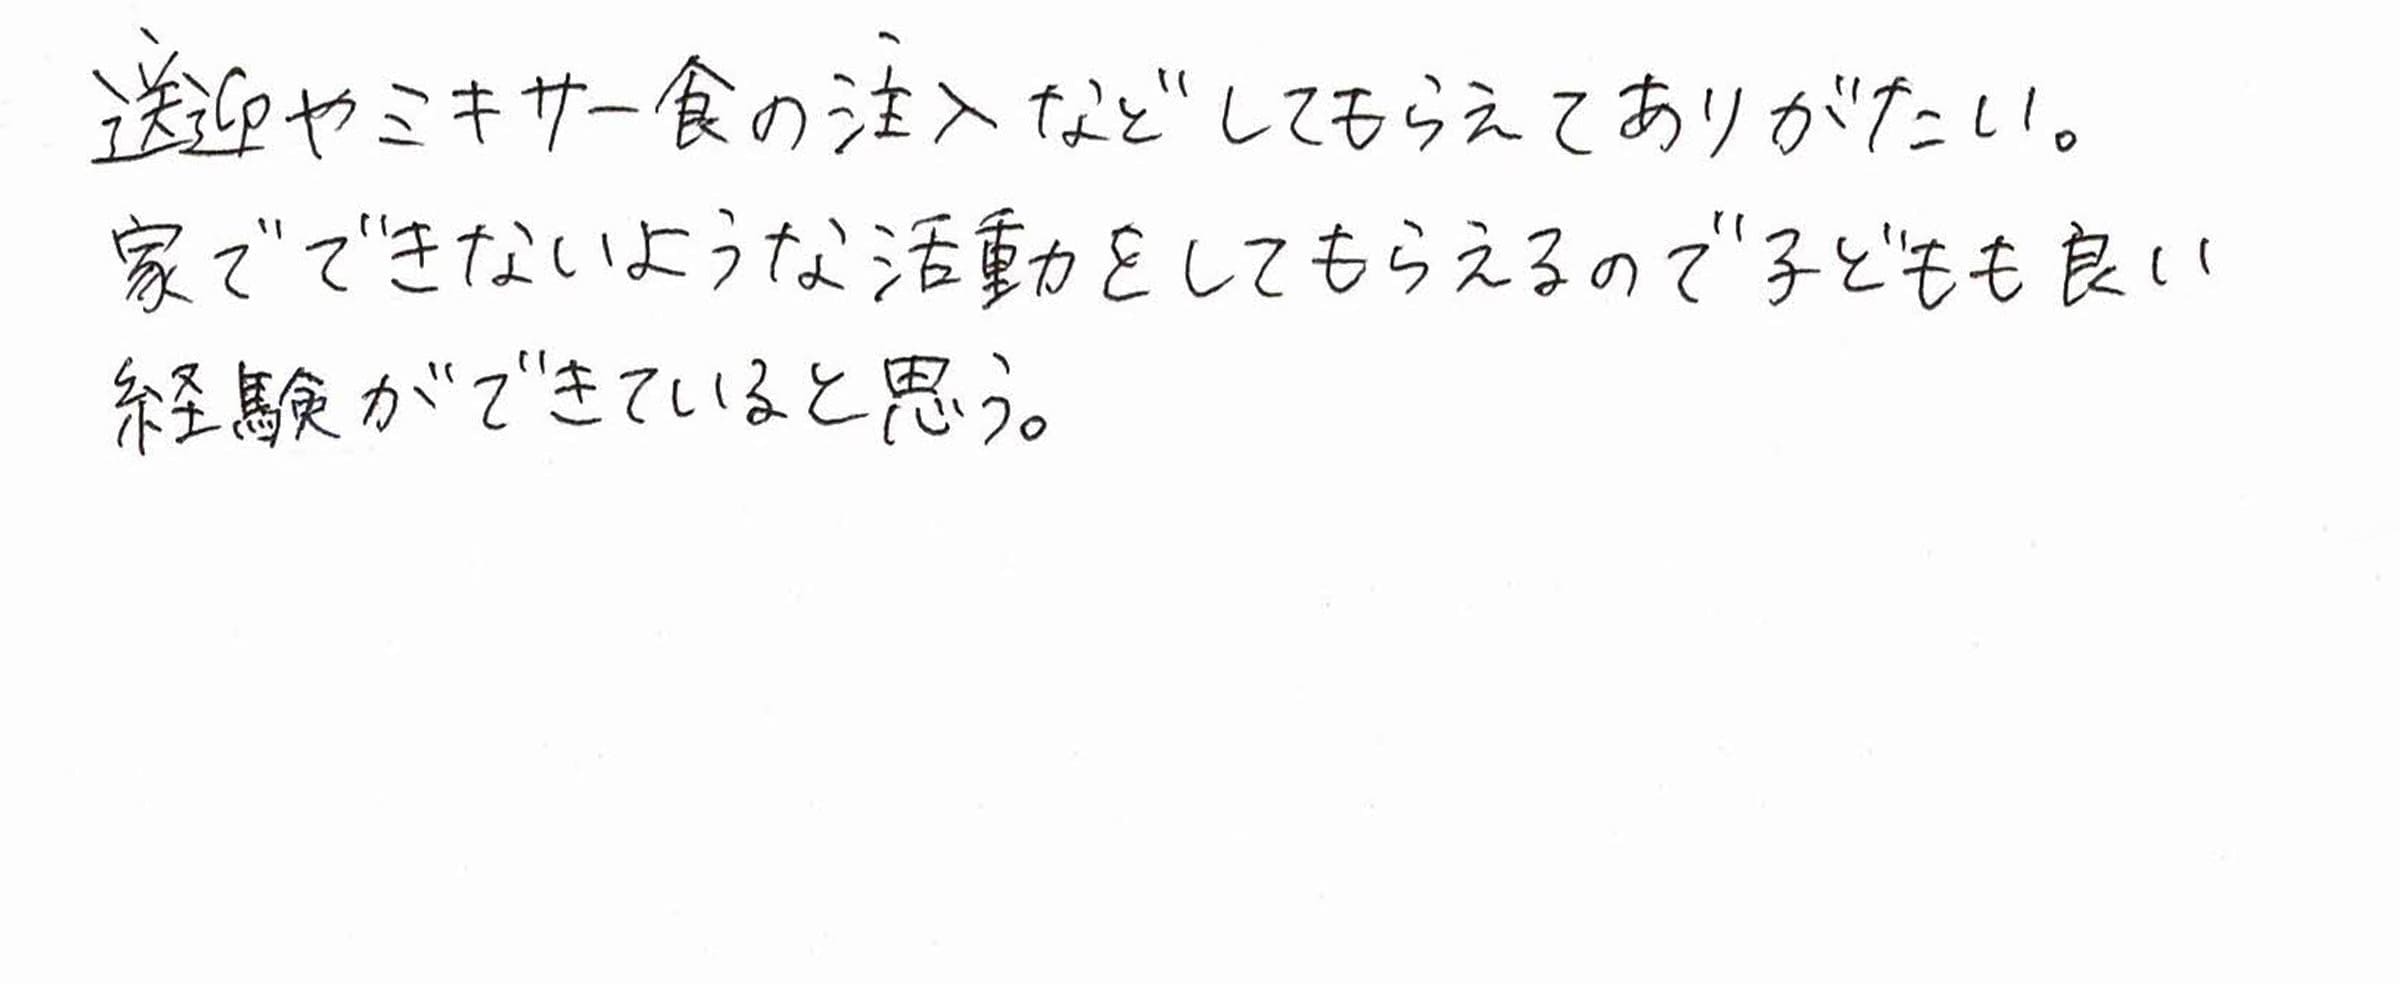 送迎やミキサー食の注入などしてもらえてありがたい。
家でできないような活動をしてもらえるので子どもも良い
経験ができていると思う。